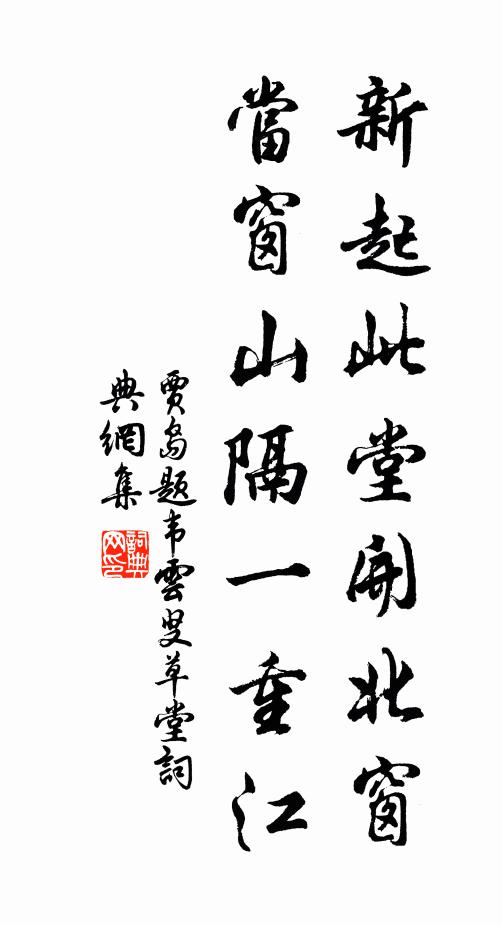 新起此堂開北窗
當窗山隔一重江
賈島题韦雲叟草堂詞
典網集
詞典
网印